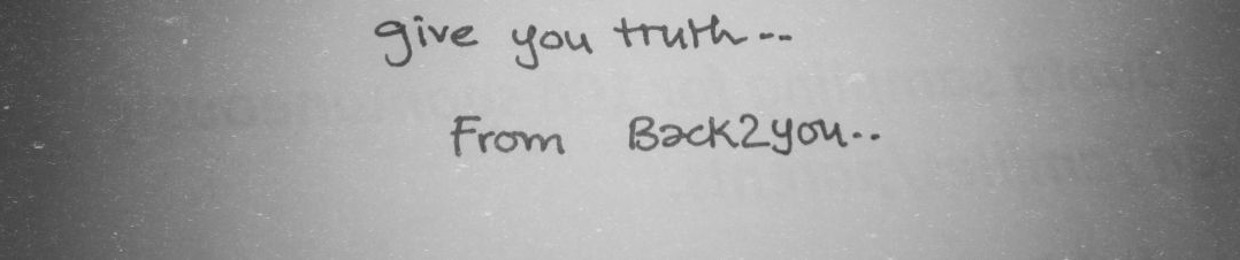 give you truth--
From Back2you..